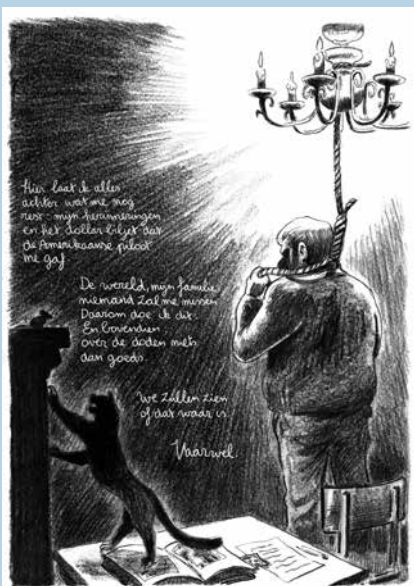 Hier laat ik alles
achter wat me nog
rest: mijn herinneringen
en het dollarbiljet dat
de Amerikaanse piloot
me gaf.
De wereld, mijn familie
niemand zal me missen
Daarom doe ik dit.
En bovendien:
over de doden niets
dan goeds.
We zullen zien
of dat waar is.
Vaarwel.